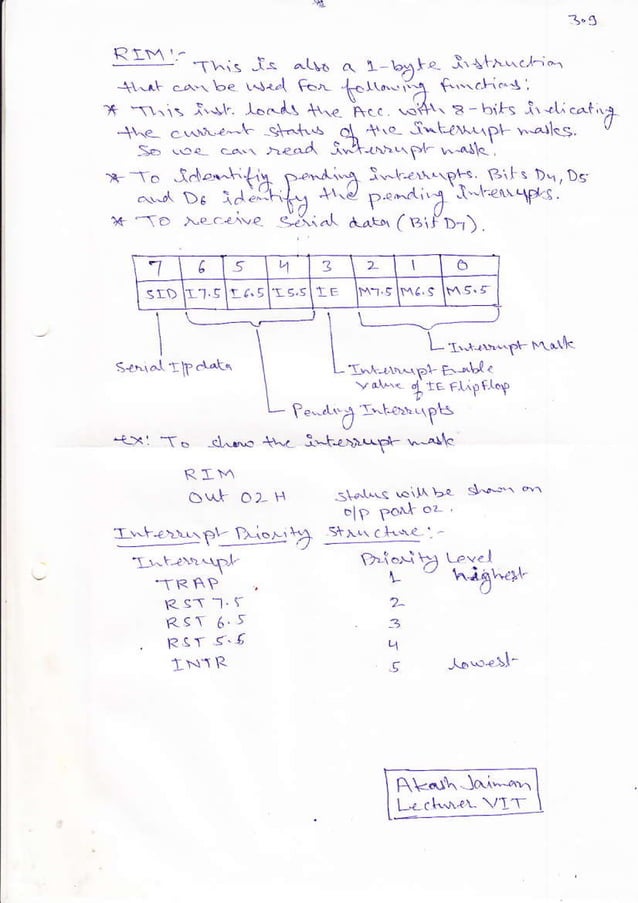 3.9
RIM :-
This is also a 1-byte instruction
that can be used for following functions :
* This inst. loads the Acc. with 8-bits indicating
the current status of the interrupt masks.
So we can read interrupt mask.
* To identifiy pending interrupts. Bits D4, D5
and D6 identify the pending interrupts.
* To receive serial data (Bit D7).
7 6 5 4 3 2 1 0
SID I7.5 I6.5 I5.5 IE M7.5 M6.5 M5.5
Interrupt Mask
Serial I/p data
Interrupt Enable
Value of IE Flip Flop
Pending Interrupts
ex: To show the interrupt mask
RIM
Out 02 H status will be shown on
o/p port 02.
Interrupt Priority Structure :-
Interrupt Priority Level
TRAP 1 highest
RST 7.5 2
RST 6.5 3
RST 5.5 4
INTR 5 lowest
Akash Jaiman
Lecturer VIT